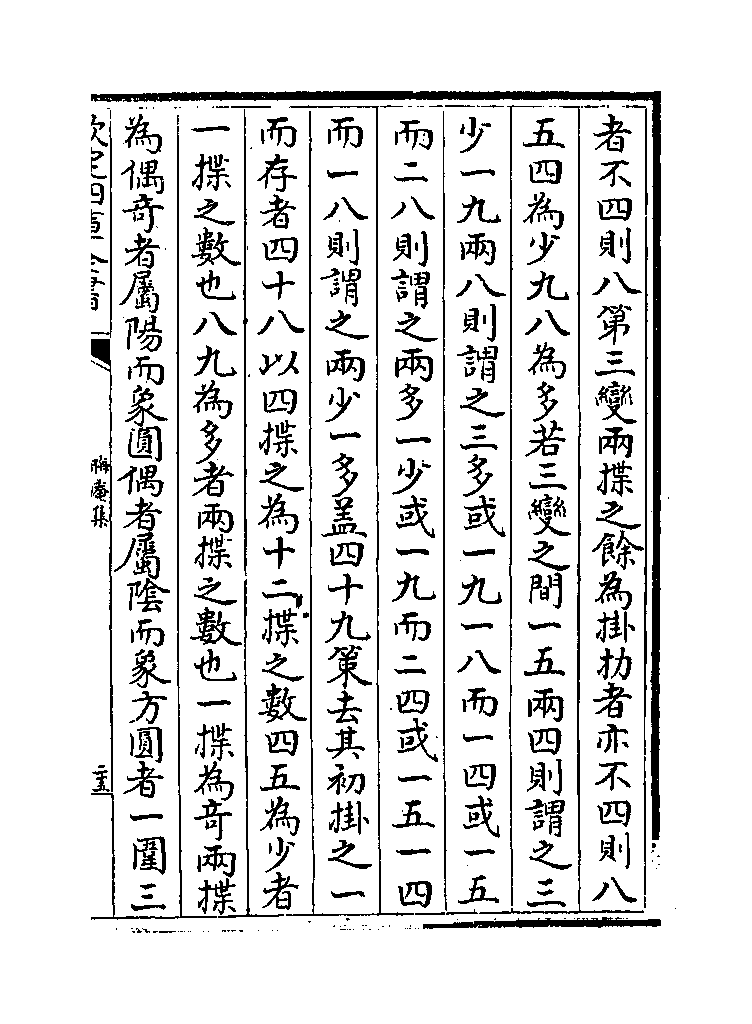 者不四則八第三變兩揲之餘為掛扐者亦不四則八
五四為少九八為多若三變之間一五兩四則謂之三
少一九兩八則謂之三多或一九一八而一四或一五
而二八則謂之兩多一少或一九而二四或一五一四
而一八則謂之兩少一多盖四十九策去其初掛之一
而存者四十八以四揲之為十二揲之數四五為少者
一揲之數也八九為多者兩揲之數也一揲為奇兩揲
為偶奇者屬陽而象圓偶者屬陰而象方圓者一圍三
欽定四庫全書
晦庵集